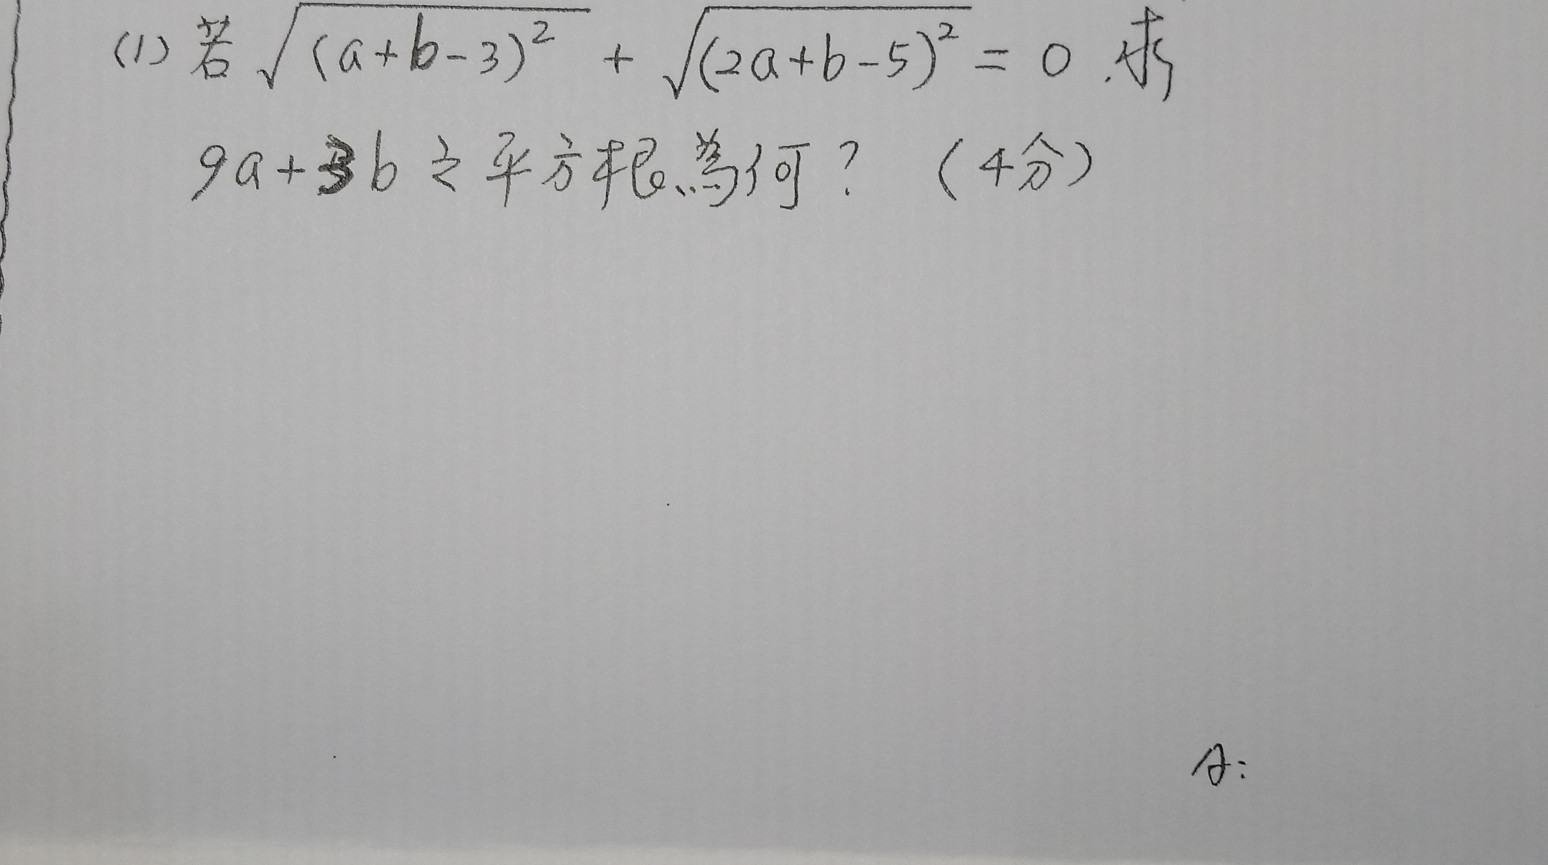 (1) 若 √(a+b-3)² + √(2a+b-5)² = 0 求
9a+3b之平方根為何？（4分）
A: